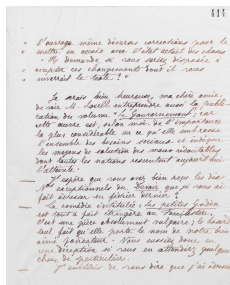 l'ouvrage même diverses corrections pour le
mettre en accord avec l'état actuel des choses
Me demande si vous seriez disposée à
accepter ces changements dont il vous
enverrait le texte ?"
Je serais bien heureuse, ma chère amie,
de voir M. Lovell entreprendre aussi la publi-
cation du volume "Le Gouvernement", car
cette œuvre est, selon moi, d'importance
la plus considérable en ce qu'elle embrasse
l'ensemble des besoins sociaux et indique
les moyens de
dont toutes les nations ressentent aujourd'hui
l'atteinte.
J'espère que vous avez bien reçu les dix
Nos exceptionnels du Devoir que je vous ai
fait adresser en février dernier ?
La comédie intitulée : Les petites Godin
est tout à fait étrangère au Familistère.
C'est une pièce absolument vulgaire ; le hasard
seul fait qu'elle porte le nom de notre bien
aimé fondateur. Vous eussiez donc eu
une déception si vous en attendiez quelque
chose de particulier.
J'oubliais de vous dire que j'ai adressé